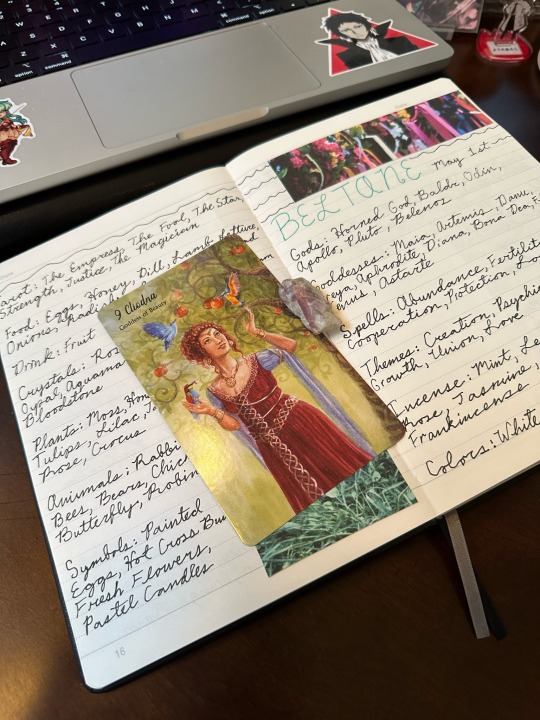 option
command
command
option
Tarot: The Empress, The Fool, The Star,
Strength, Justice, The Magician
Food: Eggs, Honey, Dill, Lamb, Lettuce,
Onions, Radi
Drink: Fruit
Crystals: Ros
Opal, Aquama
Bloodstone
Plants: Moss, Hon
Tulips, Lilac,
Rose, Crocus
Animals: Rabbi
Bees, Bears, Chic
Butterfly, Robin
Symbols: Painted
Eggs, Hot Cross Bu
Fresh Flowers,
Pastel Candles
16
9 Cliodna
Goddess of Beauty
BELTANE May 1st
Gods: Horned God, Baldr, Odin,
Apollo, Pluto, Belenos
Goddesses: Maia, Artemis, Danu,
Freya, Aphrodite, Diana, Bona Dea, F
Venus, Astarte
Spells: Abundance, Fertilit
Cooperation, Potection, Lo
Themes: Creation, Psychic
Growth, Union, Love
Incense: Mint, Le
Rose, Jasmine,
Frankincense
Colors: White